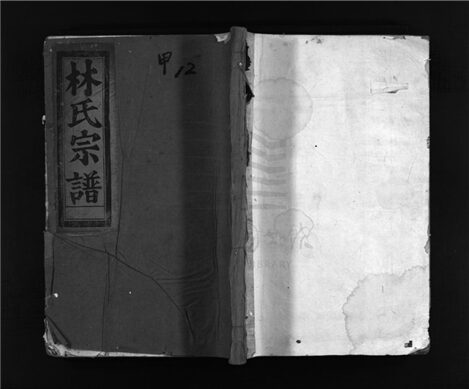 林氏宗譜
甲 12